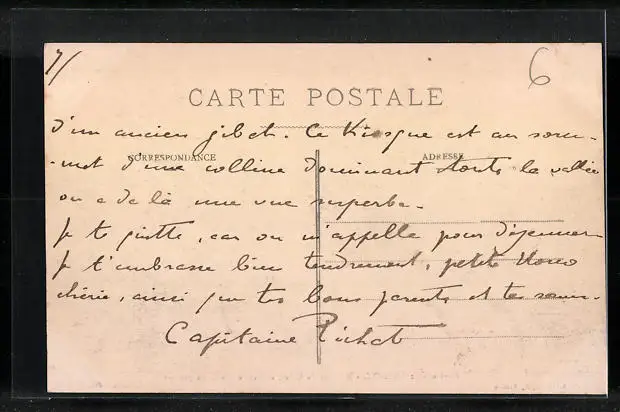 7/
6
CARTE POSTALE
d'un ancien gibet. Ce Kiosque est au som-
CORRESPONDANCE
ADRESSE
-met d'une colline dominant toute la vallée
on a de là une vue superbe.
Je te quitte, car on m'appelle pour déjeuner
Je t'embrasse bien tendrement, petite
chérie, ainsi que tes bons parents et ta soeur.
Capitaine Richet